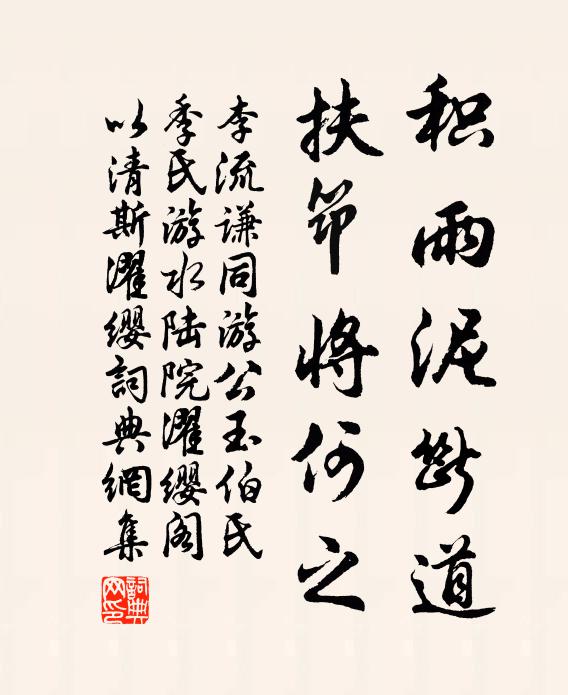 积雨泥斷道
扶筇将何之
李流谦同游公玉伯氏
季氏游水陆院濯缨阁
以清斯濯缨詞典網集
詞典网印